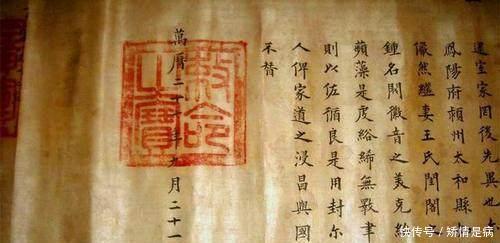 室家罔後先異也
鳳陽府潁州太和縣
然繼妻王氏閨
鍾名閥徽音之美克
蘋藻是虔綌絺無斁聿
則以佐循良是用封尔
人俾家道之浸昌與國
不替
萬曆二十一年九月二十一
敕命
之寶
快传号/矫情是病